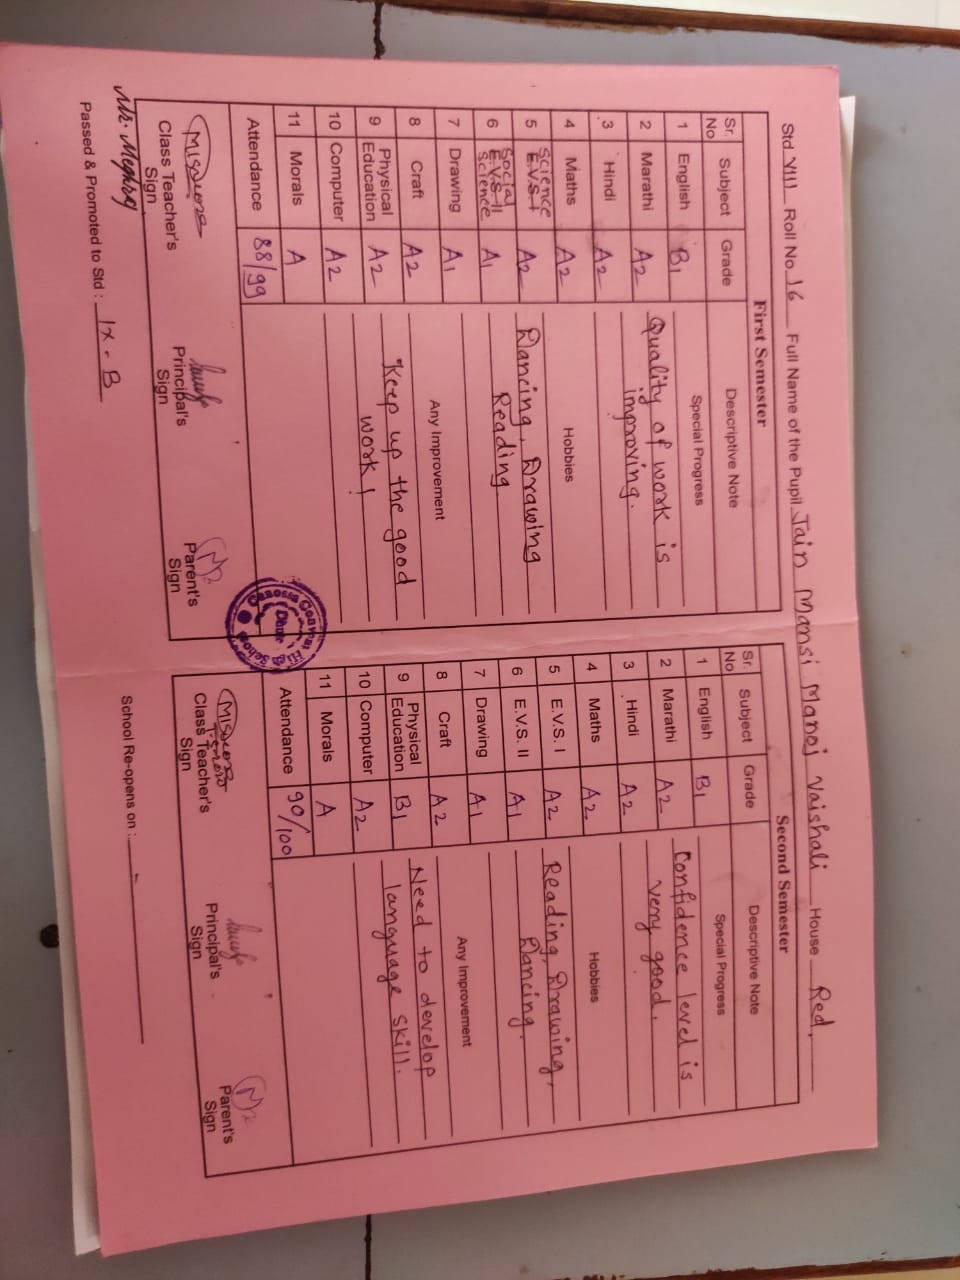 Std VIII Roll No 16 Full Name of the Pupil Jain Mansi Manoj Vaishali House Red.
First Semester
Sr. No Subject Grade Descriptive Note
Special Progress
1 English B1
2 Marathi A2
3 Hindi A2
4 Maths A2
5 Science E.V.S. I A2
6 Social Science E.V.S. II A1
7 Drawing A1
8 Craft A2
9 Physical Education A2
10 Computer A2
11 Morals A
Attendance 88/99
Quality of work is
improving.
Hobbies
Dancing, Drawing
Reading
Any Improvement
Keep up the good
work!
Class Teacher's Sign
Principal's Sign
Parent's Sign
Passed & Promoted to Std : IX - B
Second Semester
Sr. No Subject Grade Descriptive Note
Special Progress
1 English B1
2 Marathi A2
3 Hindi A2
4 Maths A2
5 E.V.S. I A2
6 E.V.S. II A1
7 Drawing A1
8 Craft A2
9 Physical Education B1
10 Computer A2
11 Morals A
Attendance 90/100
Confidence level is
very good.
Hobbies
Reading, Drawing,
Dancing.
Any Improvement
Need to develop
language skill.
Class Teacher's Sign
Principal's Sign
Parent's Sign
School Re-opens on :
Canossa Convent High School